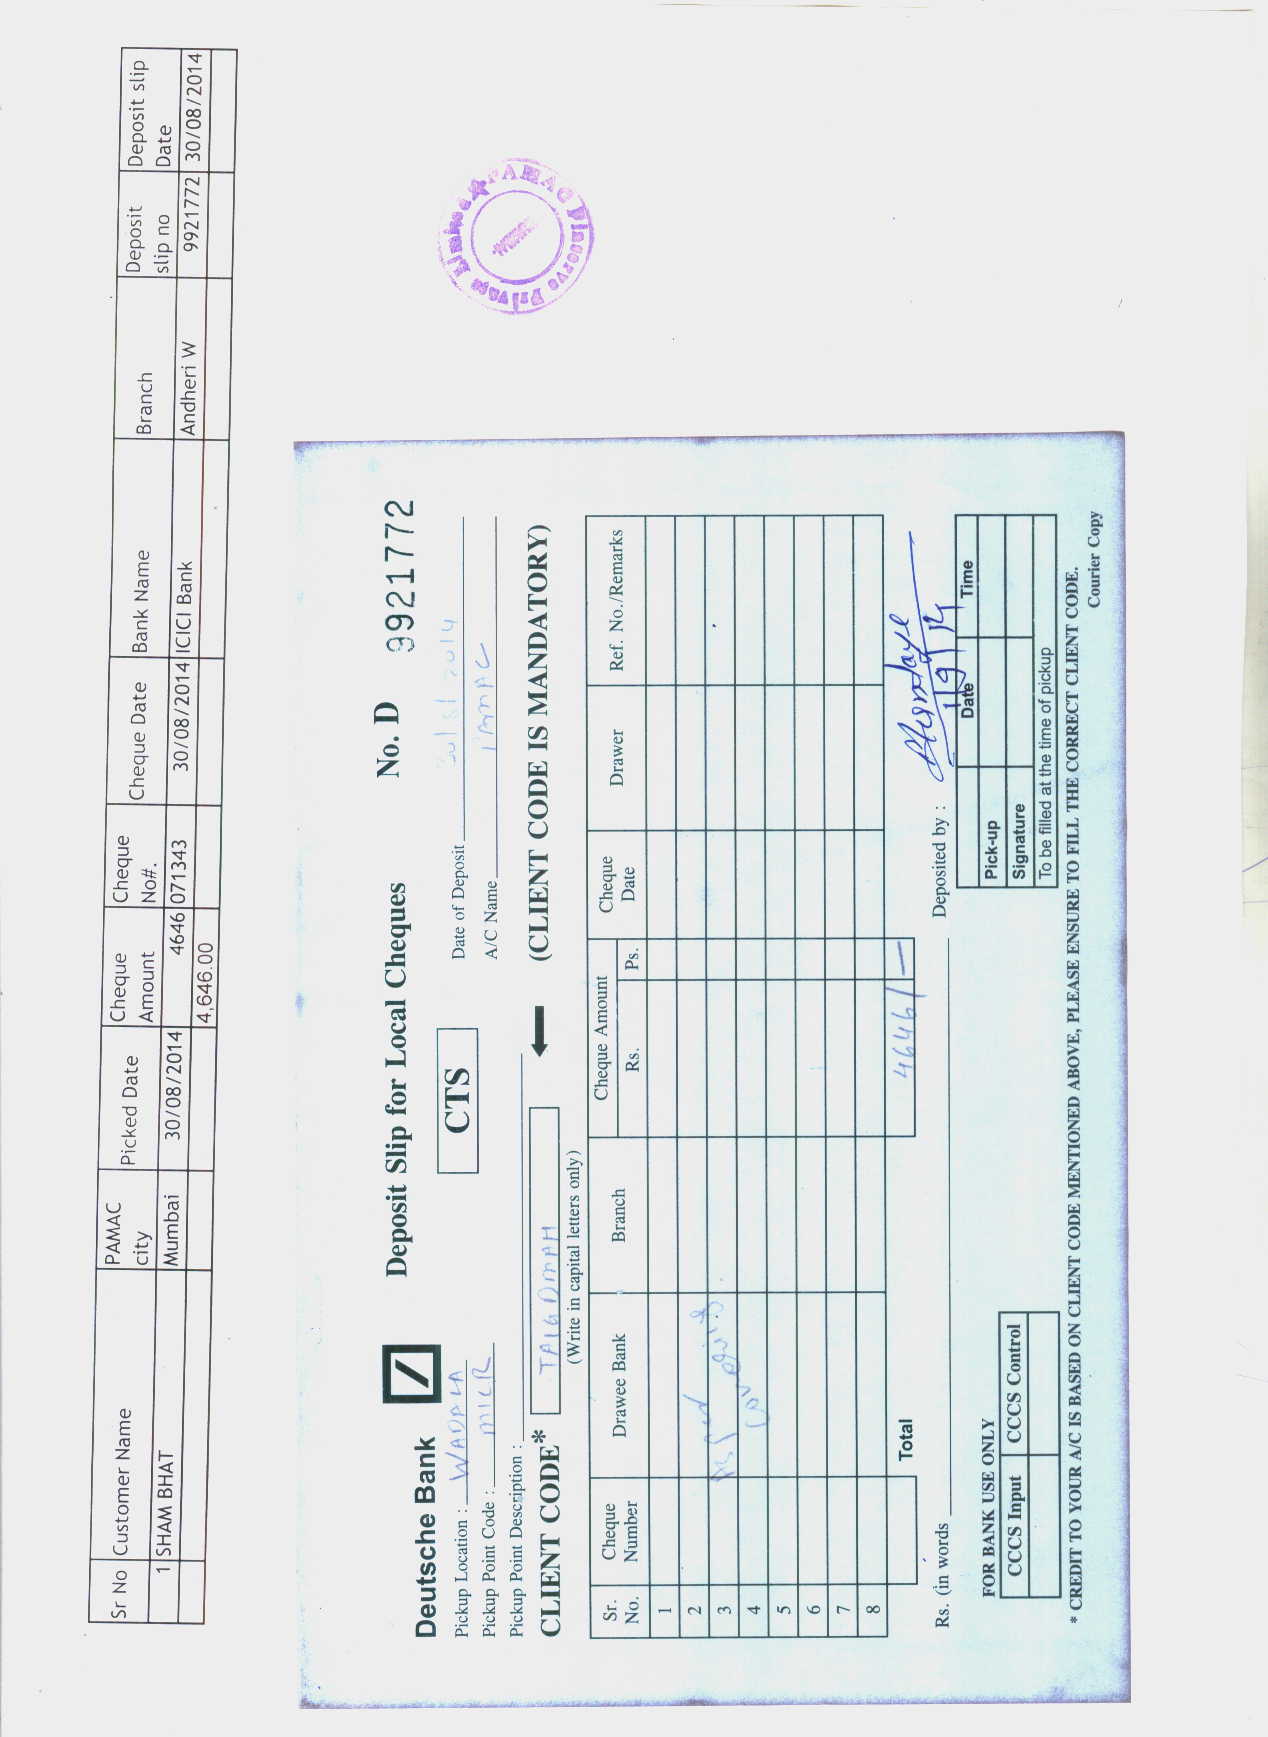 Sr No Customer Name PAMAC city Picked Date Cheque Amount Cheque No#. Cheque Date Bank Name Branch Deposit slip no Deposit slip Date
1 SHAM BHAT Mumbai 30/08/2014 4646 071343 30/08/2014 ICICI Bank Andheri W 9921772 30/08/2014
4,646.00
PAMAC Finserve Private Limited
Deutsche Bank Deposit Slip for Local Cheques No. D 9921772
Pickup Location : WADALA CTS Date of Deposit 30/8/2014
Pickup Point Code : MICR A/C Name PAMAC
Pickup Point Description :
CLIENT CODE* (CLIENT CODE IS MANDATORY)
(Write in capital letters only)
Sr. No. Cheque Number Drawee Bank Branch Cheque Amount Rs. Ps. Cheque Date Drawer Ref. No./Remarks
1
2
3
4
5
6
7
8
Total 4646/—
Rs. (in words Deposited by :
1/9/14
FOR BANK USE ONLY
CCCS Input CCCS Control
Date Time
Pick-up
Signature
To be filled at the time of pickup
* CREDIT TO YOUR A/C IS BASED ON CLIENT CODE MENTIONED ABOVE, PLEASE ENSURE TO FILL THE CORRECT CLIENT CODE.
Courier Copy